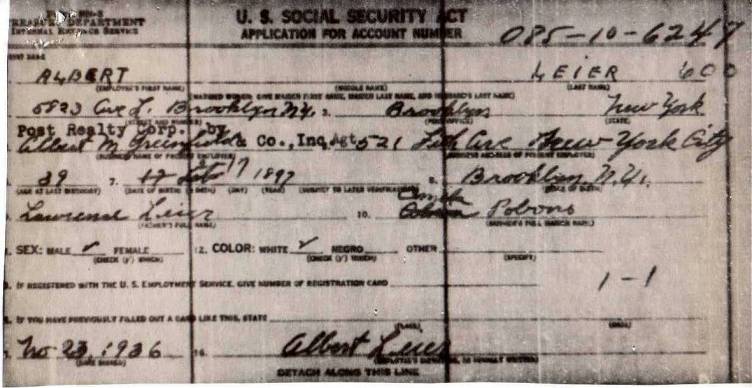 TREASURY DEPARTMENT
INTERNAL REVENUE SERVICE
U. S. SOCIAL SECURITY ACT
APPLICATION FOR ACCOUNT NUMBER
085-10-6247
ALBERT LEIER 600
(EMPLOYEE'S FIRST NAME) (MIDDLE NAME) (LAST NAME)
5823 Ave L. Brooklyn N.Y. 3. Brooklyn New York
(STREET AND NUMBER) (POST OFFICE) (STATE)
Post Realty Corp. by
Albert M Greenfield & Co., Inc, Agt 521 5th Ave New York City
(BUSINESS NAME OF PRESENT EMPLOYER) (BUSINESS ADDRESS OF PRESENT EMPLOYER)
39 7. 17 1897 8. Brooklyn N.Y.
(AGE AT LAST BIRTHDAY) (DATE OF BIRTH: (MONTH) (DAY) (YEAR) (SUBJECT TO LATER VERIFICATION) (PLACE OF BIRTH)
Lawrence Leier 10.
(FATHER'S FULL NAME) (MOTHER'S FULL MAIDEN NAME)
SEX: MALE ✓ FEMALE 12. COLOR: WHITE ✓ NEGRO OTHER
(CHECK (✓) WHICH) (CHECK (✓) WHICH) (SPECIFY)
IF REGISTERED WITH THE U. S. EMPLOYMENT SERVICE, GIVE NUMBER OF REGISTRATION CARD
1-1
IF YOU HAVE PREVIOUSLY FILLED OUT A CARD LIKE THIS, STATE
(PLACE) (DATE)
No 23, 1936 16. Albert Leier
(DATE SIGNED) (EMPLOYEE'S SIGNATURE, AS USUALLY WRITTEN)
DETACH ALONG THIS LINE